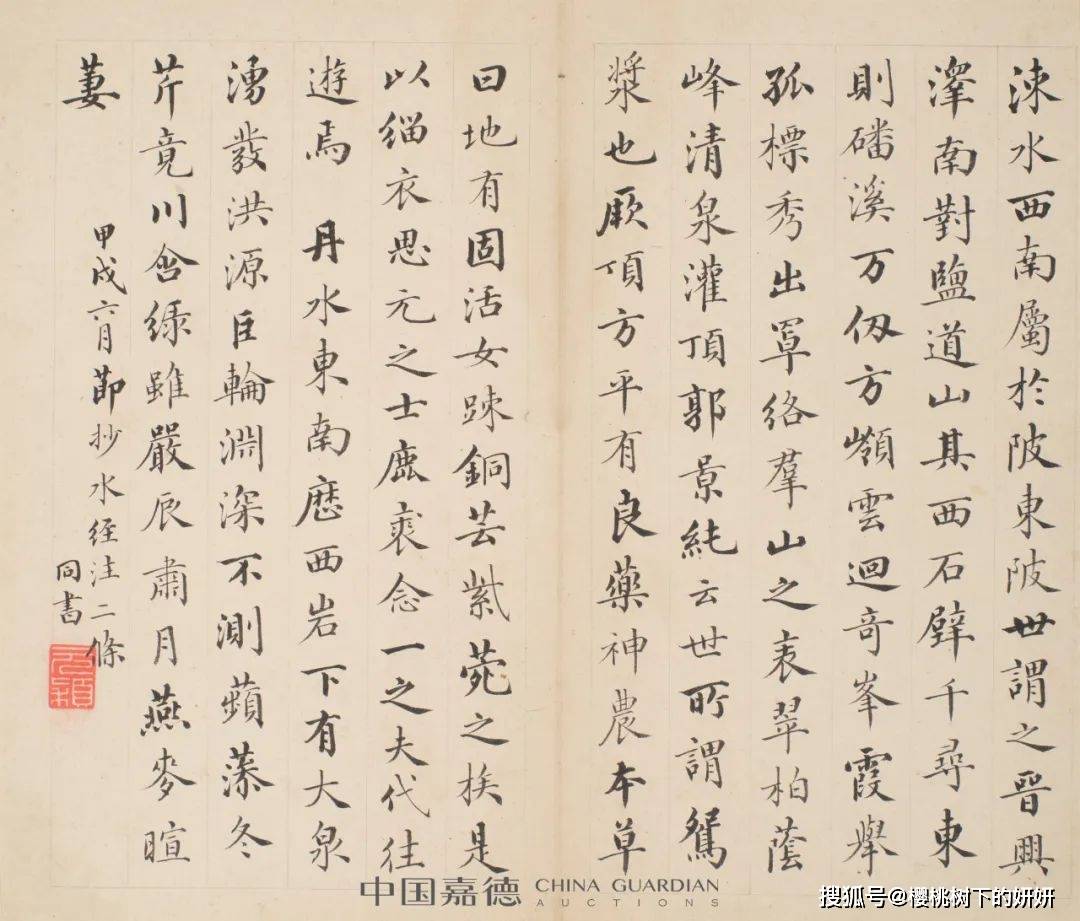 涑水西南屬於陂東陂世謂之晉興
澤南對鹽道山其西石壁千尋東
則磻溪万仭方嶺雲迴奇峯霞舉
孤標秀出罩络羣山之表翠柏蔭
峰清泉灌頂郭景純云世所謂鴛
漿也厥頂方平有良藥神農本草
曰地有固活女踈銅芸紫菀之族是
以緇衣思元之士鹿裘念一之夫代往
遊焉 丹水東南歷西岩下有大泉
湧發洪源巨輪淵深不測蘋藻冬
芹竟川含绿雖嚴辰肅月燕麥暄
萋
甲戌六月節抄水经注二條
同書
中国嘉德 CHINA GUARDIAN
AUCTIONS
搜狐号@樱桃树下的妍妍